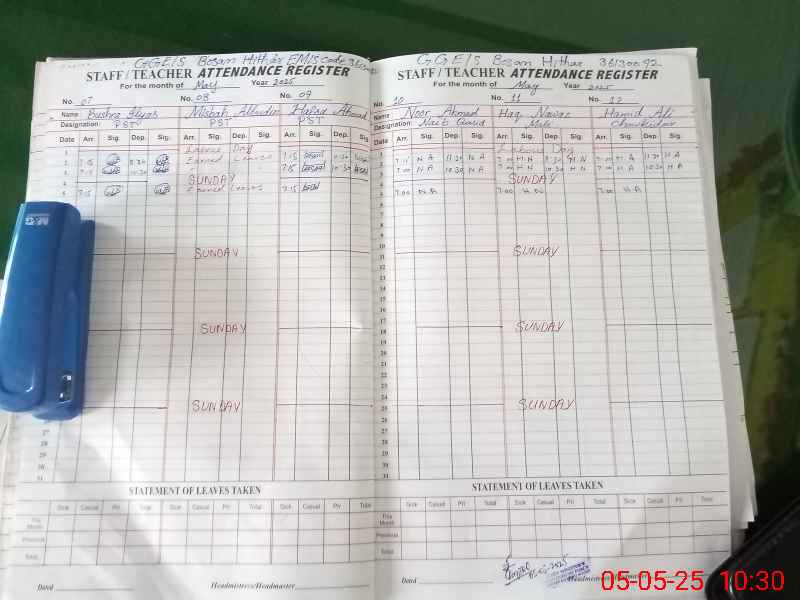 GGE/S Bosan Hithar EMIS Code
STAFF / TEACHER ATTENDANCE REGISTER
For the month of May Year 2025
No. 07 No. 08 No. 09
Name Bushra Ilyas Misbah Hafsa Ahmad
Designation: PST PST PST
Date Arr. Sig. Dep. Sig. Arr. Sig. Dep. Sig. Arr. Sig. Dep. Sig.
1 Labour Day
2 7:15 8:30 Earned Leaves 7:15 11:30
3 7:15 10:30 7:15 10:30
4 SUNDAY
5 7:15 Earned Leaves 7:15
SUNDAY
SUNDAY
SUNDAY
27
28
29
30
31
STATEMENT OF LEAVES TAKEN
Sick Casual Pri Total Sick Casual Pri Total Sick Casual Pri Total
This Month
Previous
Total
Dated Headmistress/Headmaster
GGE/S Bosan Hithar 36130092
STAFF / TEACHER ATTENDANCE REGISTER
For the month of May Year 2025
No. 10 No. 11 No. 12
Name Noor Ahmad Haq Nawaz Hamid Ali
Designation: Naib Qasid Mali Chowkidar
Date Arr. Sig. Dep. Sig. Arr. Sig. Dep. Sig. Arr. Sig. Dep. Sig.
1 Labour Day
2 N A 11:30 N A 7:00 H N H N 7:00 H A 11:30 H A
3 7:00 N A 10:30 N A 7:00 H N 10:30 H N 7:00 H A 10:30 H A
4 SUNDAY
5 7:00 N A 7:00 H N 7:00 H A
SUNDAY
SUNDAY
SUNDAY
STATEMENT OF LEAVES TAKEN
Sick Casual Pri Total Sick Casual Pri Total Sick Casual Pri Total
This Month
Previous
Total
05-05-2025
Dated Headmistress/Headmaster
M&G
05-05-25 10:30